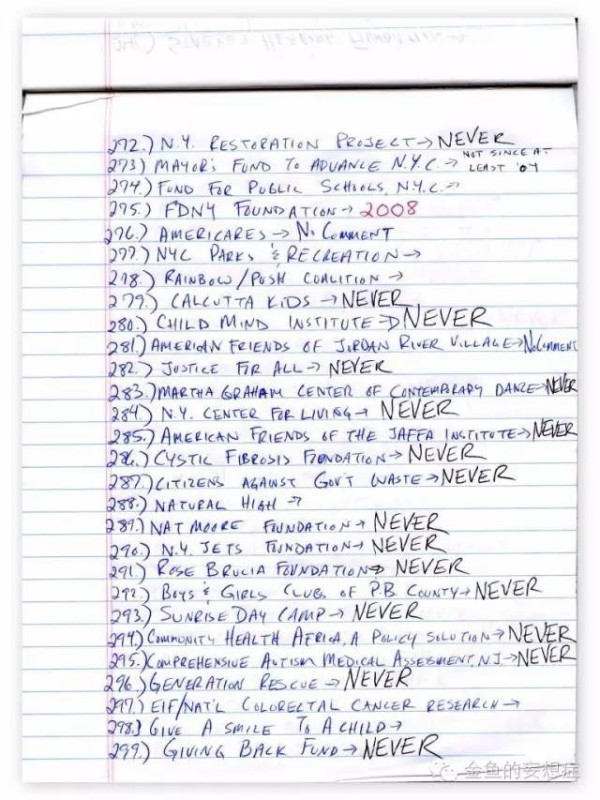 272.) N.Y. RESTORATION PROJECT → NEVER
273) MAYOR'S FUND TO ADVANCE N.Y.C. → NOT SINCE AT LEAST '04
274.) FUND FOR PUBLIC SCHOOLS, N.Y.C. →
275.) FDNY FOUNDATION → 2008
276.) AMERICARES → NO COMMENT
277.) NYC PARKS & RECREATION →
278.) RAINBOW/PUSH COALITION →
279.) CALCUTTA KIDS → NEVER
280.) CHILD MIND INSTITUTE → NEVER
281.) AMERICAN FRIENDS OF JORDAN RIVER VILLAGE → NO COMMENT
282.) JUSTICE FOR ALL → NEVER
283.) MARTHA GRAHAM CENTER OF CONTEMPORARY DANCE → NEVER
284.) N.Y. CENTER FOR LIVING → NEVER
285.) AMERICAN FRIENDS OF THE JAFFA INSTITUTE → NEVER
286.) CYSTIC FIBROSIS FOUNDATION → NEVER
287.) CITIZENS AGAINST GOV'T WASTE → NEVER
288.) NATURAL HIGH →
289.) NAT MOORE FOUNDATION → NEVER
290.) N.Y. JETS FOUNDATION → NEVER
291.) ROSE BRUCIA FOUNDATION → NEVER
292.) BOYS & GIRLS CLUBS OF P.B. COUNTY → NEVER
293.) SUNRISE DAY CAMP → NEVER
294.) COMMUNITY HEALTH AFRICA, A POLICY SOLUTION → NEVER
295.) COMPREHENSIVE AUTISM MEDICAL ASSESSMENT, NJ → NEVER
296.) GENERATION RESCUE → NEVER
297.) EIF/NAT'L COLORECTAL CANCER RESEARCH →
298.) GIVE A SMILE TO A CHILD →
299.) GIVING BACK FUND → NEVER
金鱼的妄想症